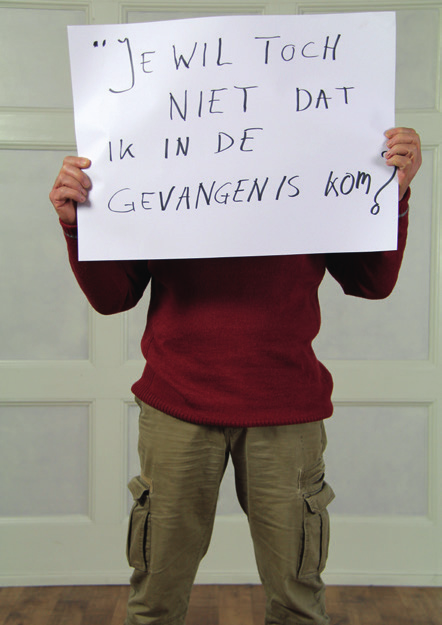 "JE WIL TOCH
NIET DAT
IK IN DE
GEVANGENIS KOM?